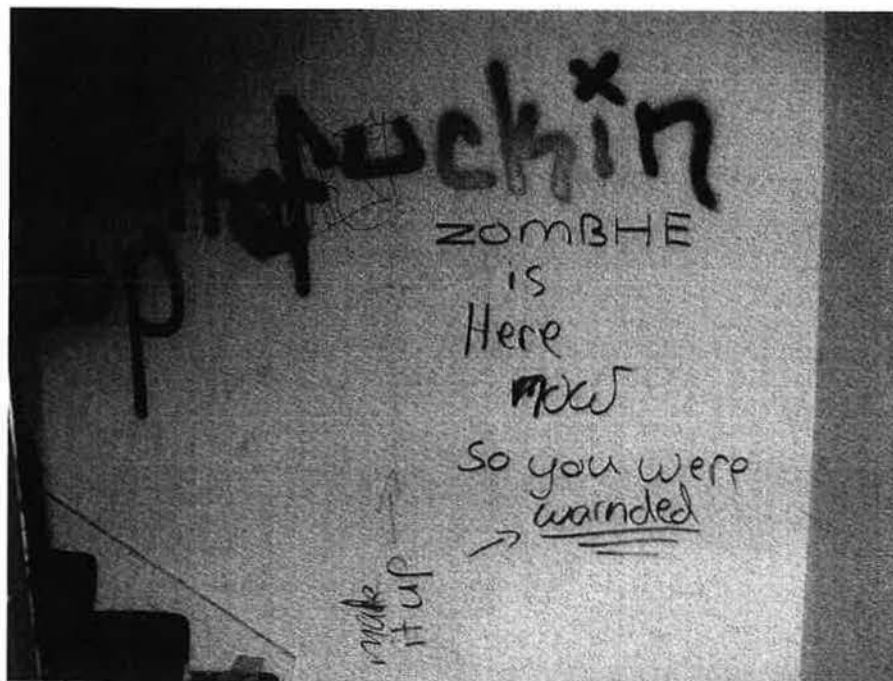 fuckin
ZOMBHE
is
Here
now
So you were
warnded
made
it up